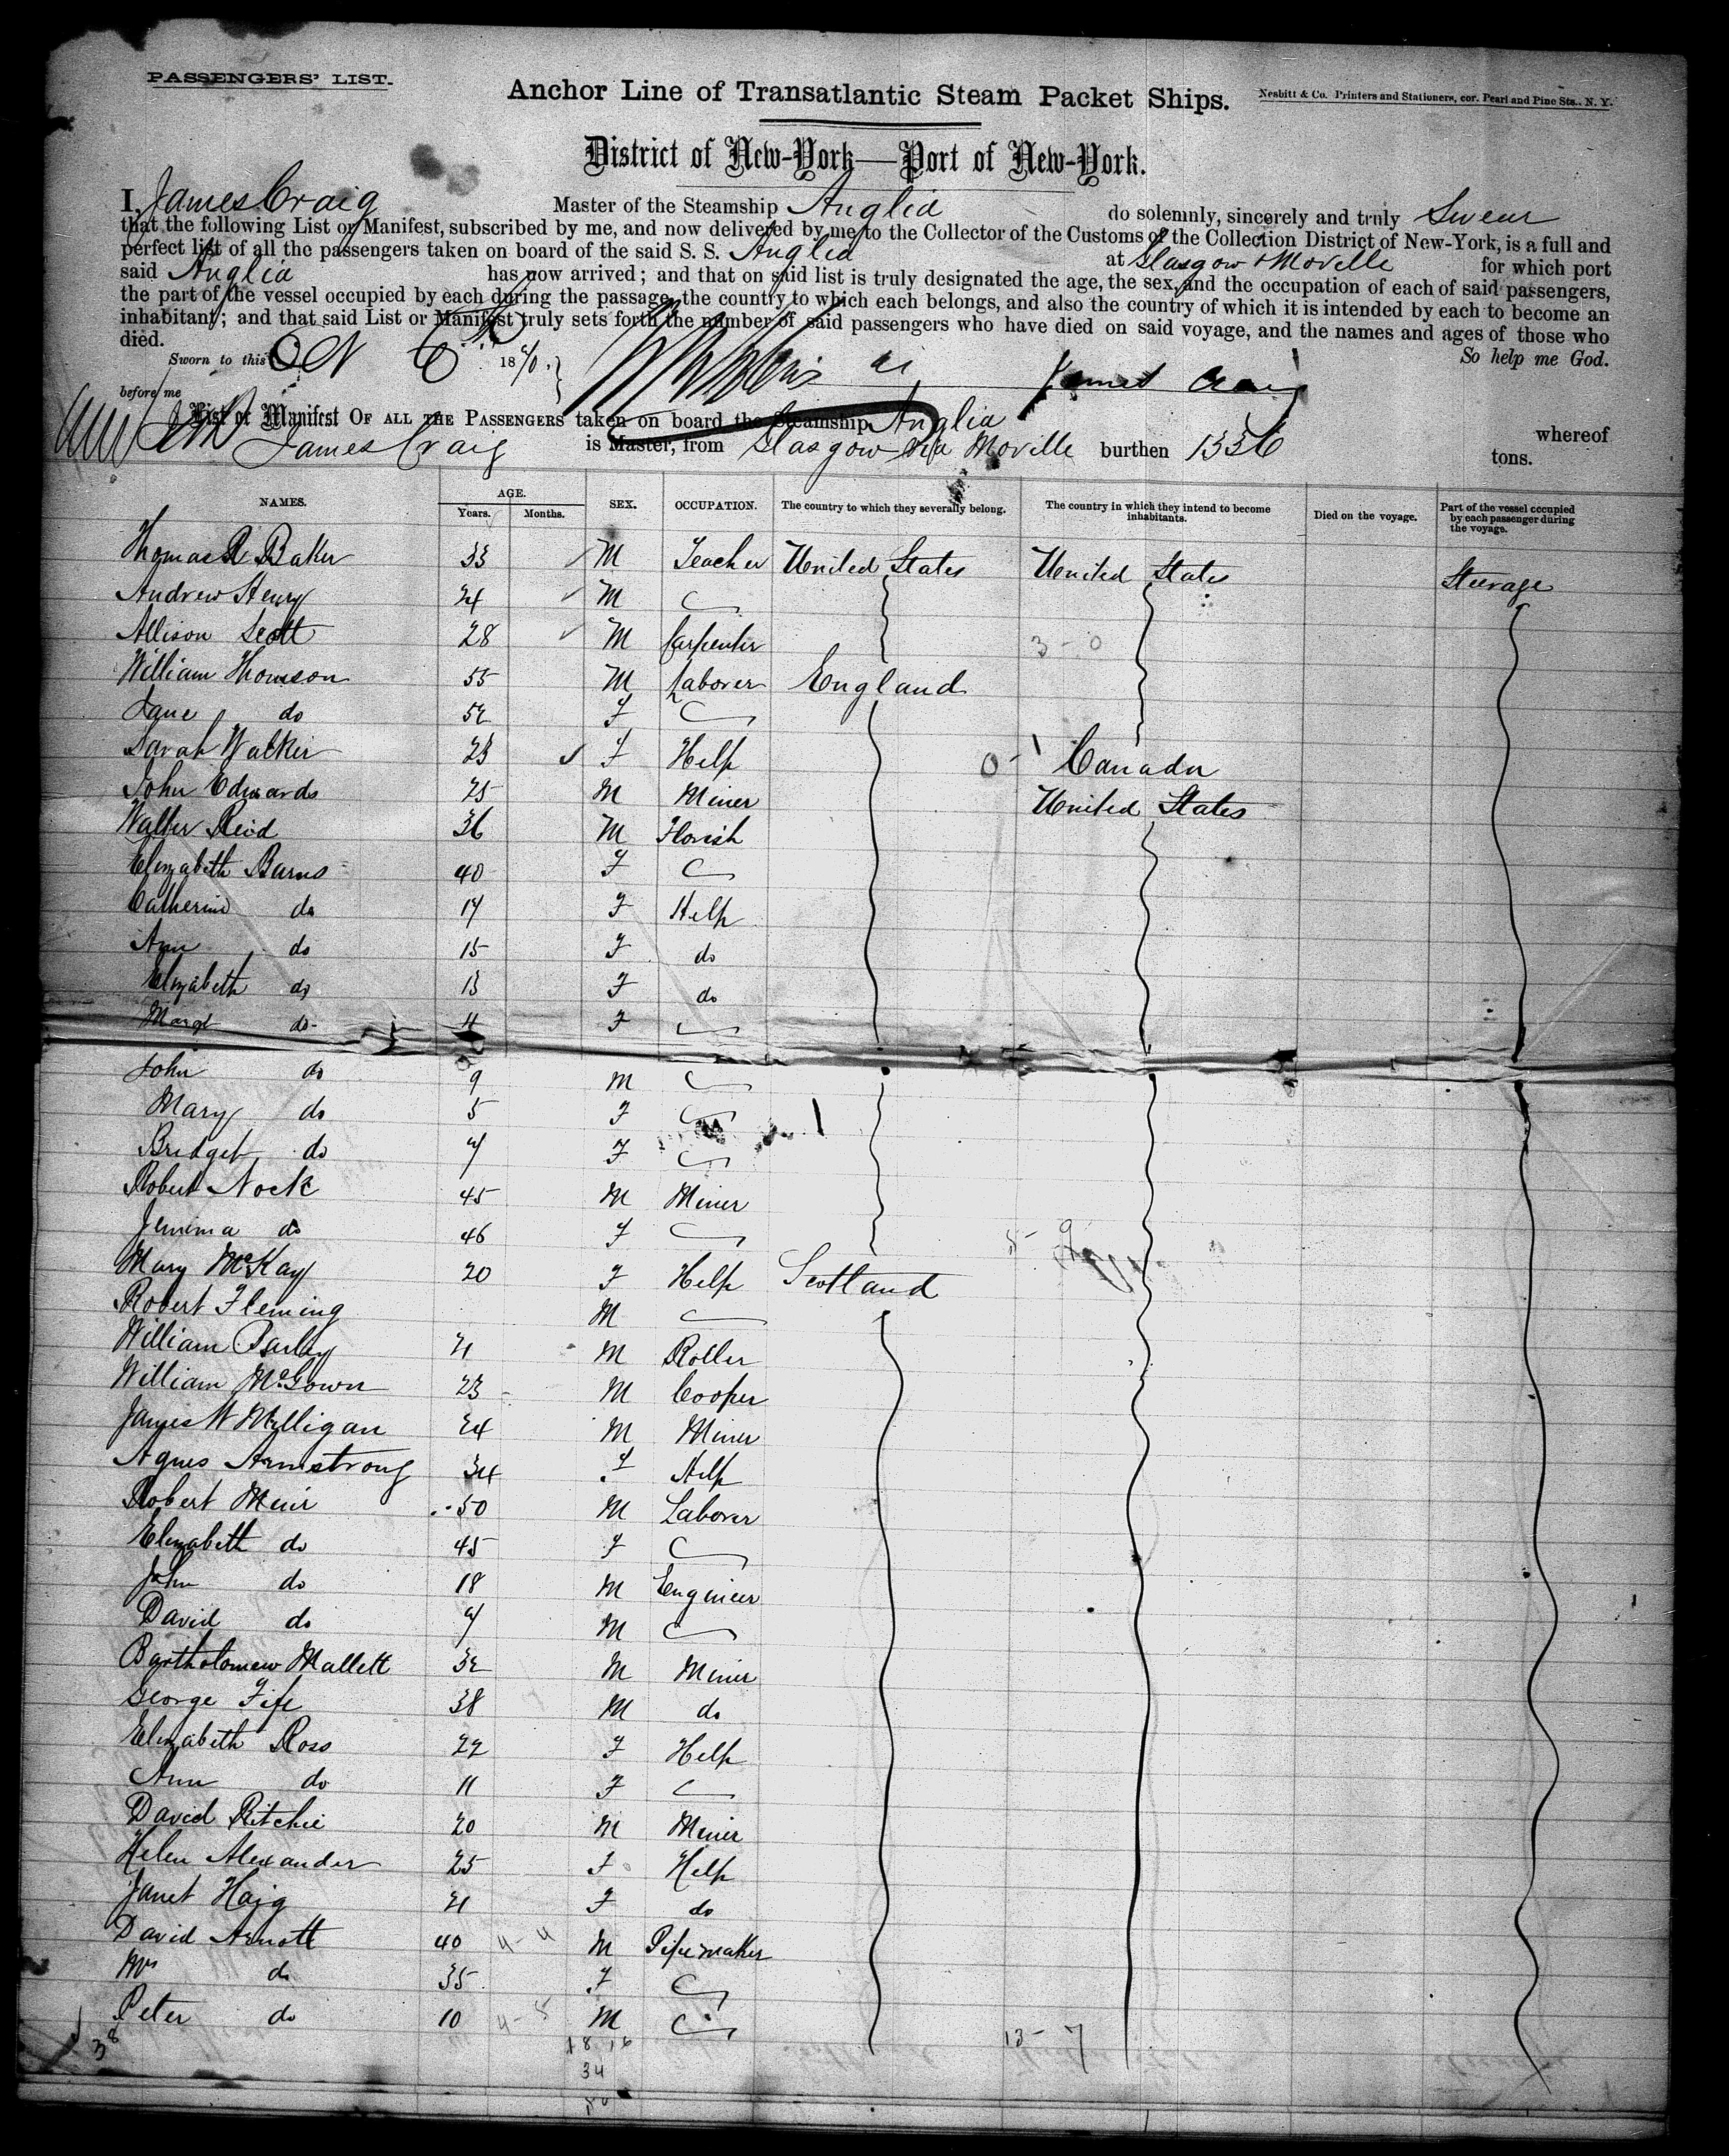 PASSENGERS' LIST.
Anchor Line of Transatlantic Steam Packet Ships.
Nesbitt & Co. Printers and Stationers, cor. Pearl and Pine Sts., N. Y.
District of New-York—Port of New-York.
I, James Craig Master of the Steamship Anglia do solemnly, sincerely and truly Swear
that the following List or Manifest, subscribed by me, and now delivered by me to the Collector of the Customs of the Collection District of New-York, is a full and
perfect list of all the passengers taken on board of the said S. S. Anglia at Glasgow & Moville for which port
said Anglia has now arrived; and that on said list is truly designated the age, the sex, and the occupation of each of said passengers,
the part of the vessel occupied by each during the passage, the country to which each belongs, and also the country of which it is intended by each to become an
inhabitant; and that said List or Manifest truly sets forth the number of said passengers who have died on said voyage, and the names and ages of those who
died.
So help me God.
Sworn to this 18
James Craig
before me
List or Manifest OF ALL THE PASSENGERS taken on board the Steamship Anglia whereof
James Craig is Master, from Glasgow via Moville burthen 1336 tons.
NAMES. AGE. Years. Months. SEX. OCCUPATION. The country to which they severally belong. The country in which they intend to become inhabitants. Died on the voyage. Part of the vessel occupied by each passenger during the voyage.
Thomas R Baker 33 M Teacher United States United States Steerage
Andrew Henry 24 M
Allison Scott 28 M Carpenter 3 - 0
William Thomson 55 M Laborer England
Jane do 52 F
Sarah Walker 23 F Help 0 - 1 Canada
John Edwards 25 M Miner United States
Walter Reid 36 M Florish
Elizabeth Barns 40 F
Catherine do 17 F Help
Ann do 15 F do
Elizabeth do 13 F do
Margt do 11 F
John do 9 M
Mary do 5 F
Bridget do 7 F
Robert Nock 45 M Miner
Jemima do 46 F
Mary McKay 20 F Help Scotland
Robert Fleming M
William 21 M Roller
William McGown 23 M Cooper
James W Milligan 24 M Miner
Agnes Armstrong 34 F Help
Robert Muir 50 M Laborer
Elizabeth do 45 F
John do 18 M Engineer
David do 7 M
Bartholomew Mallett 32 M Miner
George Fife 38 M do
Elizabeth Ross 22 F Help
Ann do 11 F
David Ritchie 20 M Miner
Helen Alexander 25 F Help
Janet Haig 21 F do
David Arnott 40 4 - 4 M Pipemaker
Mrs do 35 F
Peter do 10 4 - 5 M
38 18 16 13 - 7
34